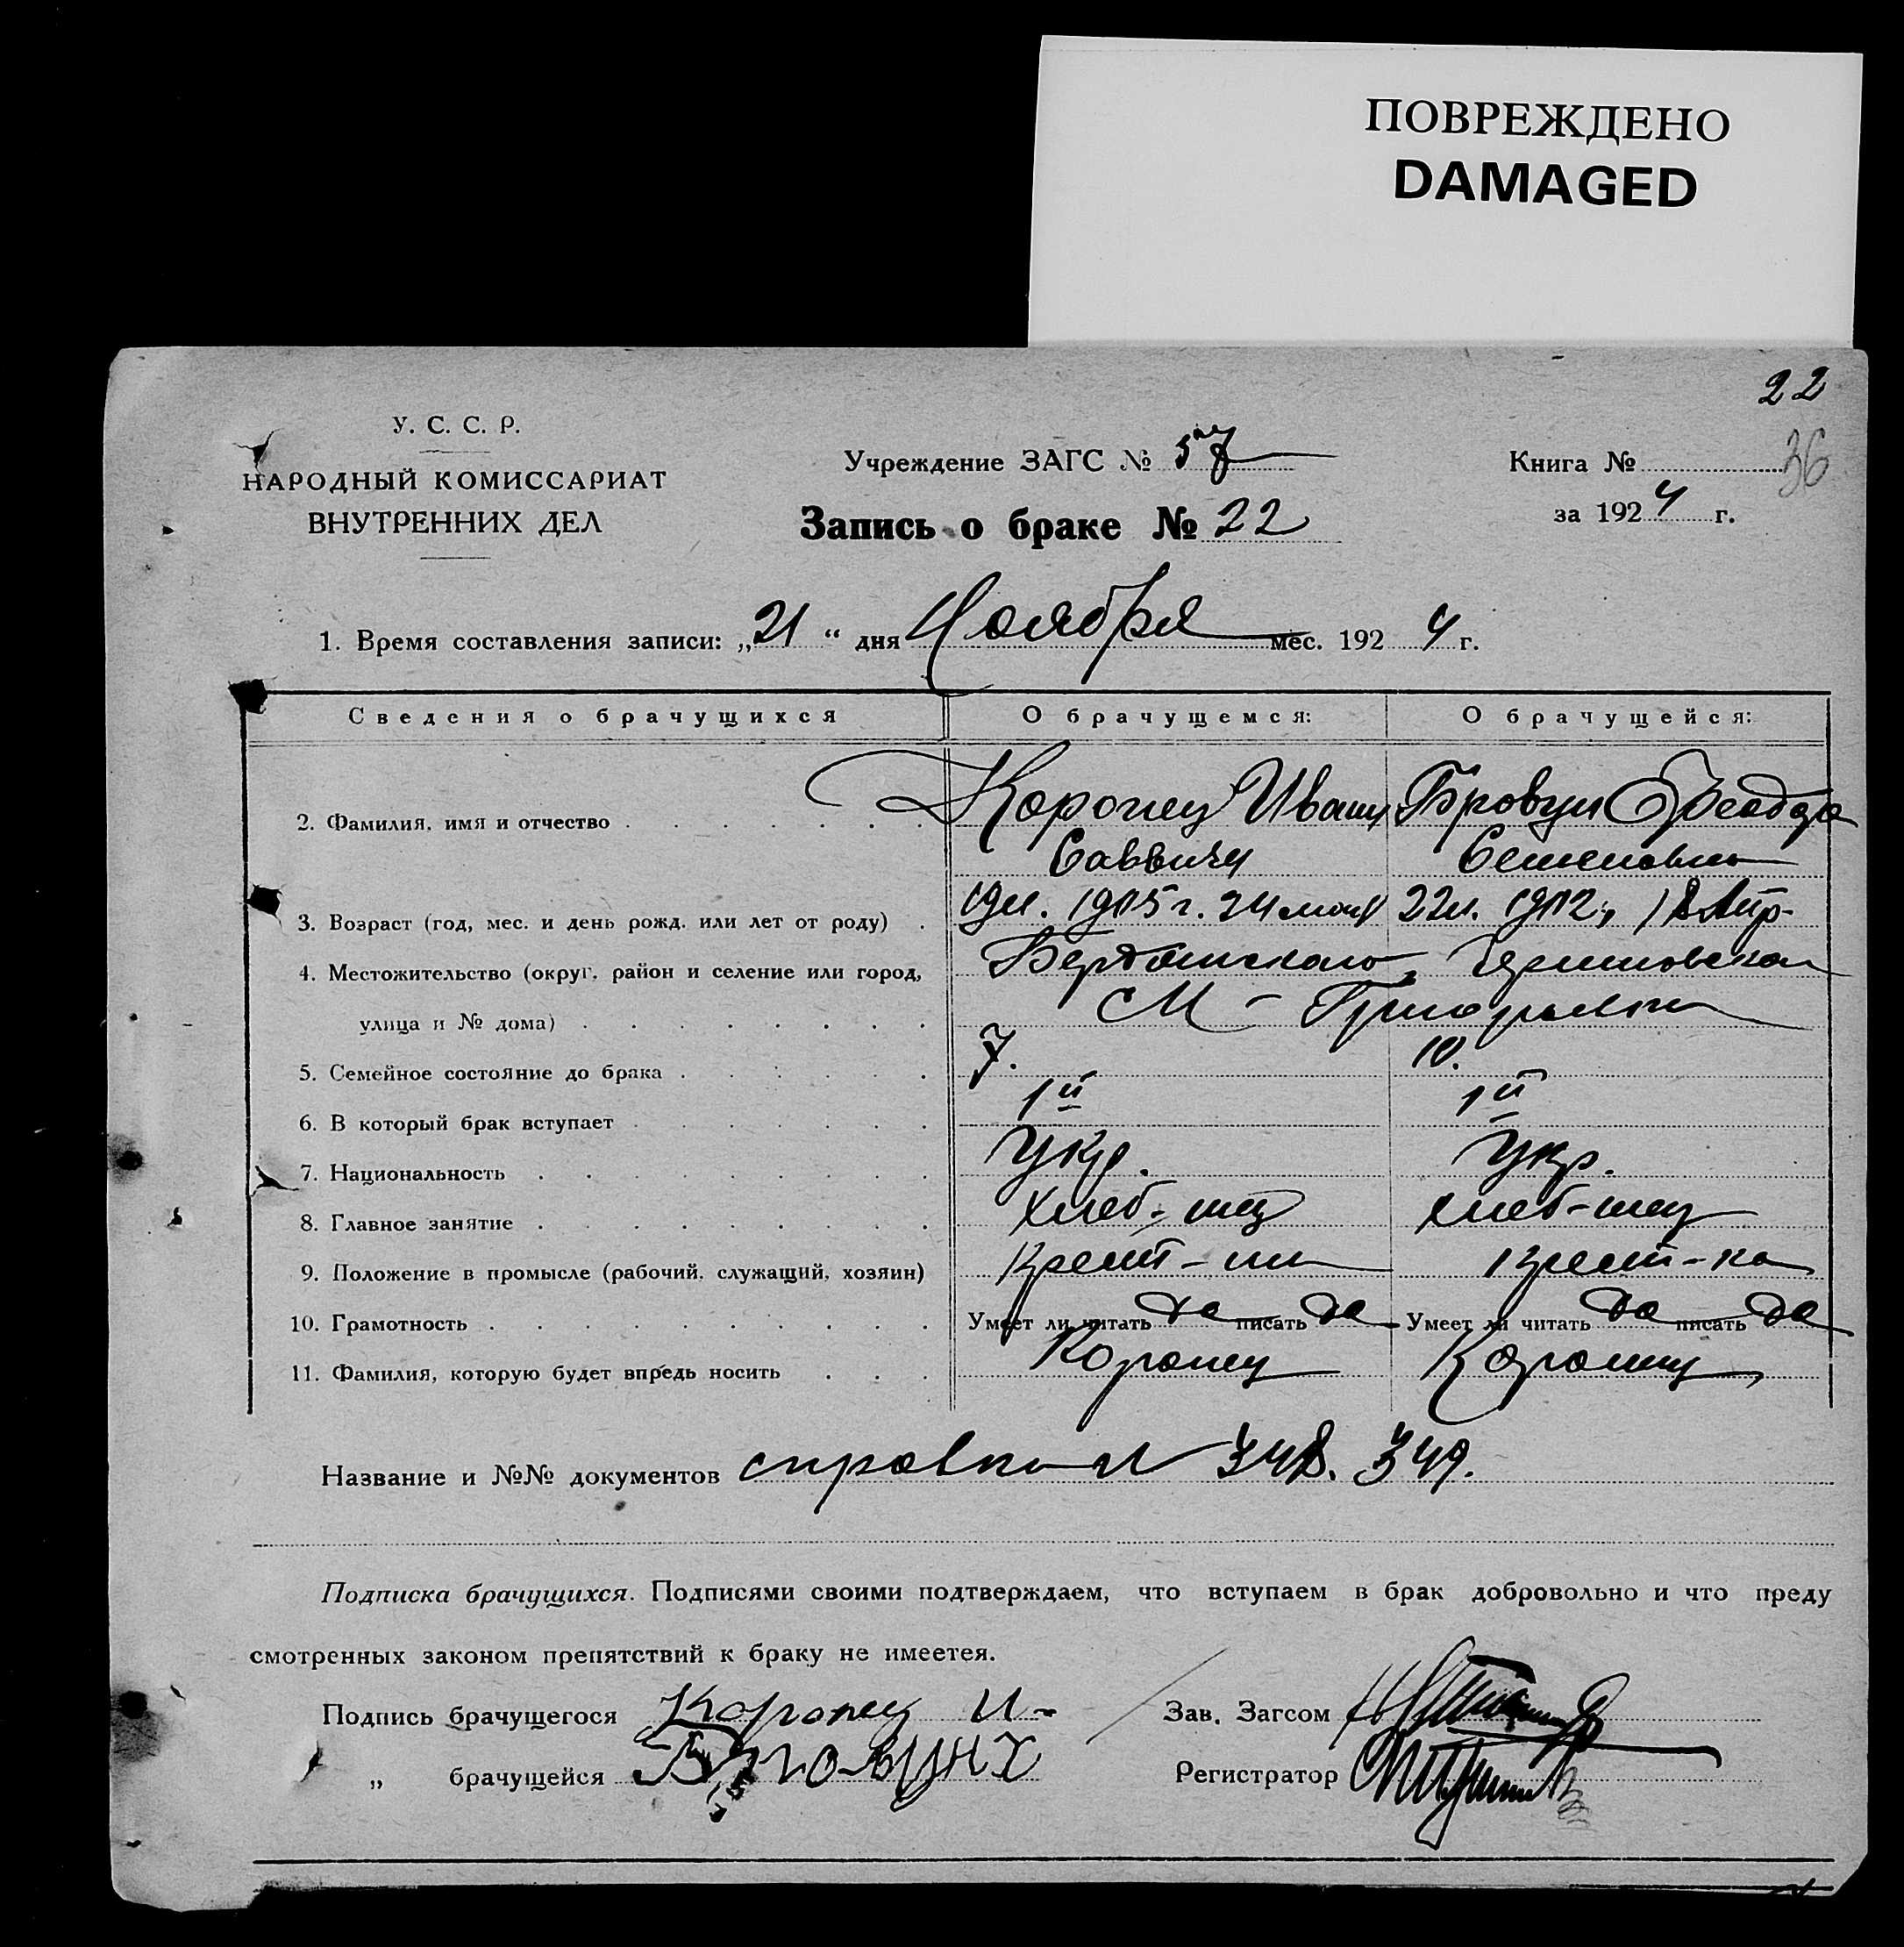 ПОВРЕЖДЕНО
DAMAGED
22
36
У. С. С. Р.
НАРОДНЫЙ КОМИССАРИАТ
ВНУТРЕННИХ ДЕЛ
Учреждение ЗАГС №
Запись о браке № 22
Книга №
за 1924 г.
1. Время составления записи: „21“ дня Ноября мес. 1924 г.
Сведения о брачущихся О брачущемся: О брачущейся:
2. Фамилия, имя и отчество Коропец Иван Бровун
Саввич Семеновна
3. Возраст (год, мес. и день рожд. или лет от роду) 19л. 1905 г. 24 мая 22л.
4. Местожительство (округ, район и селение или город,
улица и № дома)
5. Семейное состояние до брака 7. 10.
6. В который брак вступает 1й 1й
7. Национальность Укр. Укр.
8. Главное занятие Хлеб-шец хлеб-шец
9. Положение в промысле (рабочий, служащий, хозяин) Крест-ин Крест-ка
10. Грамотность Умеет ли читать да писать да Умеет ли читать да писать да
11. Фамилия, которую будет впредь носить Коропец Коропец
Название и №№ документов справки 348. 349.
Подписка брачущихся. Подписями своими подтверждаем, что вступаем в брак добровольно и что преду
смотренных законом препятствий к браку не имеетея.
Подпись брачущегося Коропец И- Зав. Загсом
„ брачущейся Регистратор